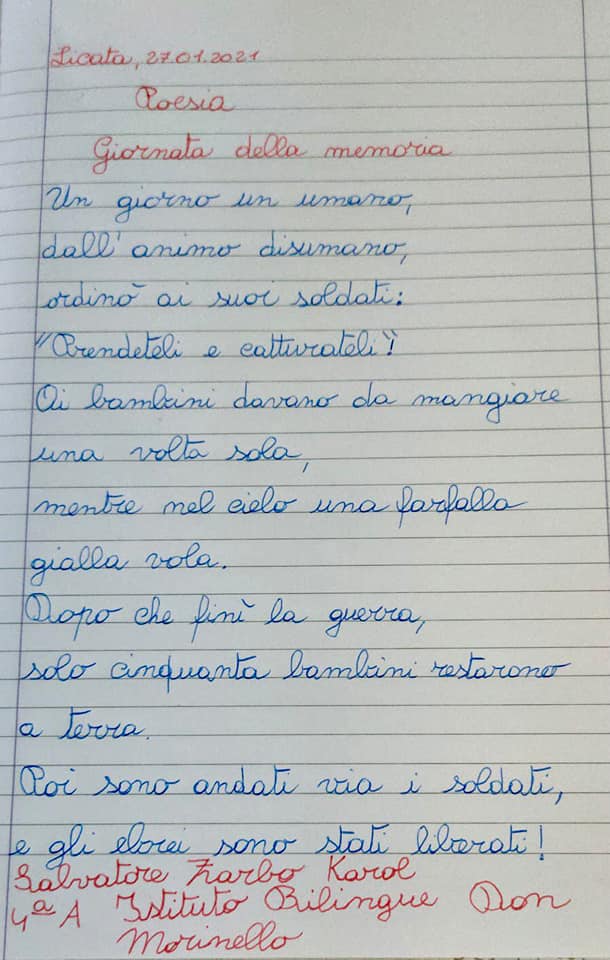 Licata, 27.01.2021
Poesia
Giornata della memoria
Un giorno un umano,
dall'animo disumano,
ordinò ai suoi soldati:
"Prendeteli e catturateli"!
Ai bambini davano da mangiare
una volta sola,
mentre nel cielo una farfalla
gialla vola.
Dopo che finì la guerra,
solo cinquanta bambini restarono
a terra.
Poi sono andati via i soldati,
e gli ebrei sono stati liberati!
Salvatore Zarbo Karol
4ª A Istituto Bilingue Don
Morinello